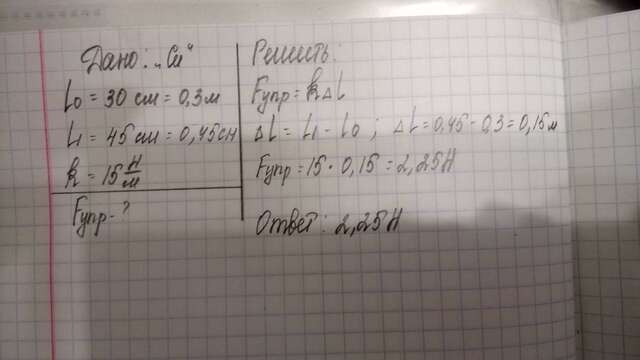 Дано: „Си“
L0 = 30 см = 0,3 м
L1 = 45 см = 0,45 см
k = 15 Н/м
Fупр - ?
Решить:
Fупр = k Δ L
Δ L = L1 - L0 ; Δ L = 0,45 - 0,3 = 0,15 м
Fупр = 15 • 0,15 = 2,25 Н
Ответ: 2,25 Н